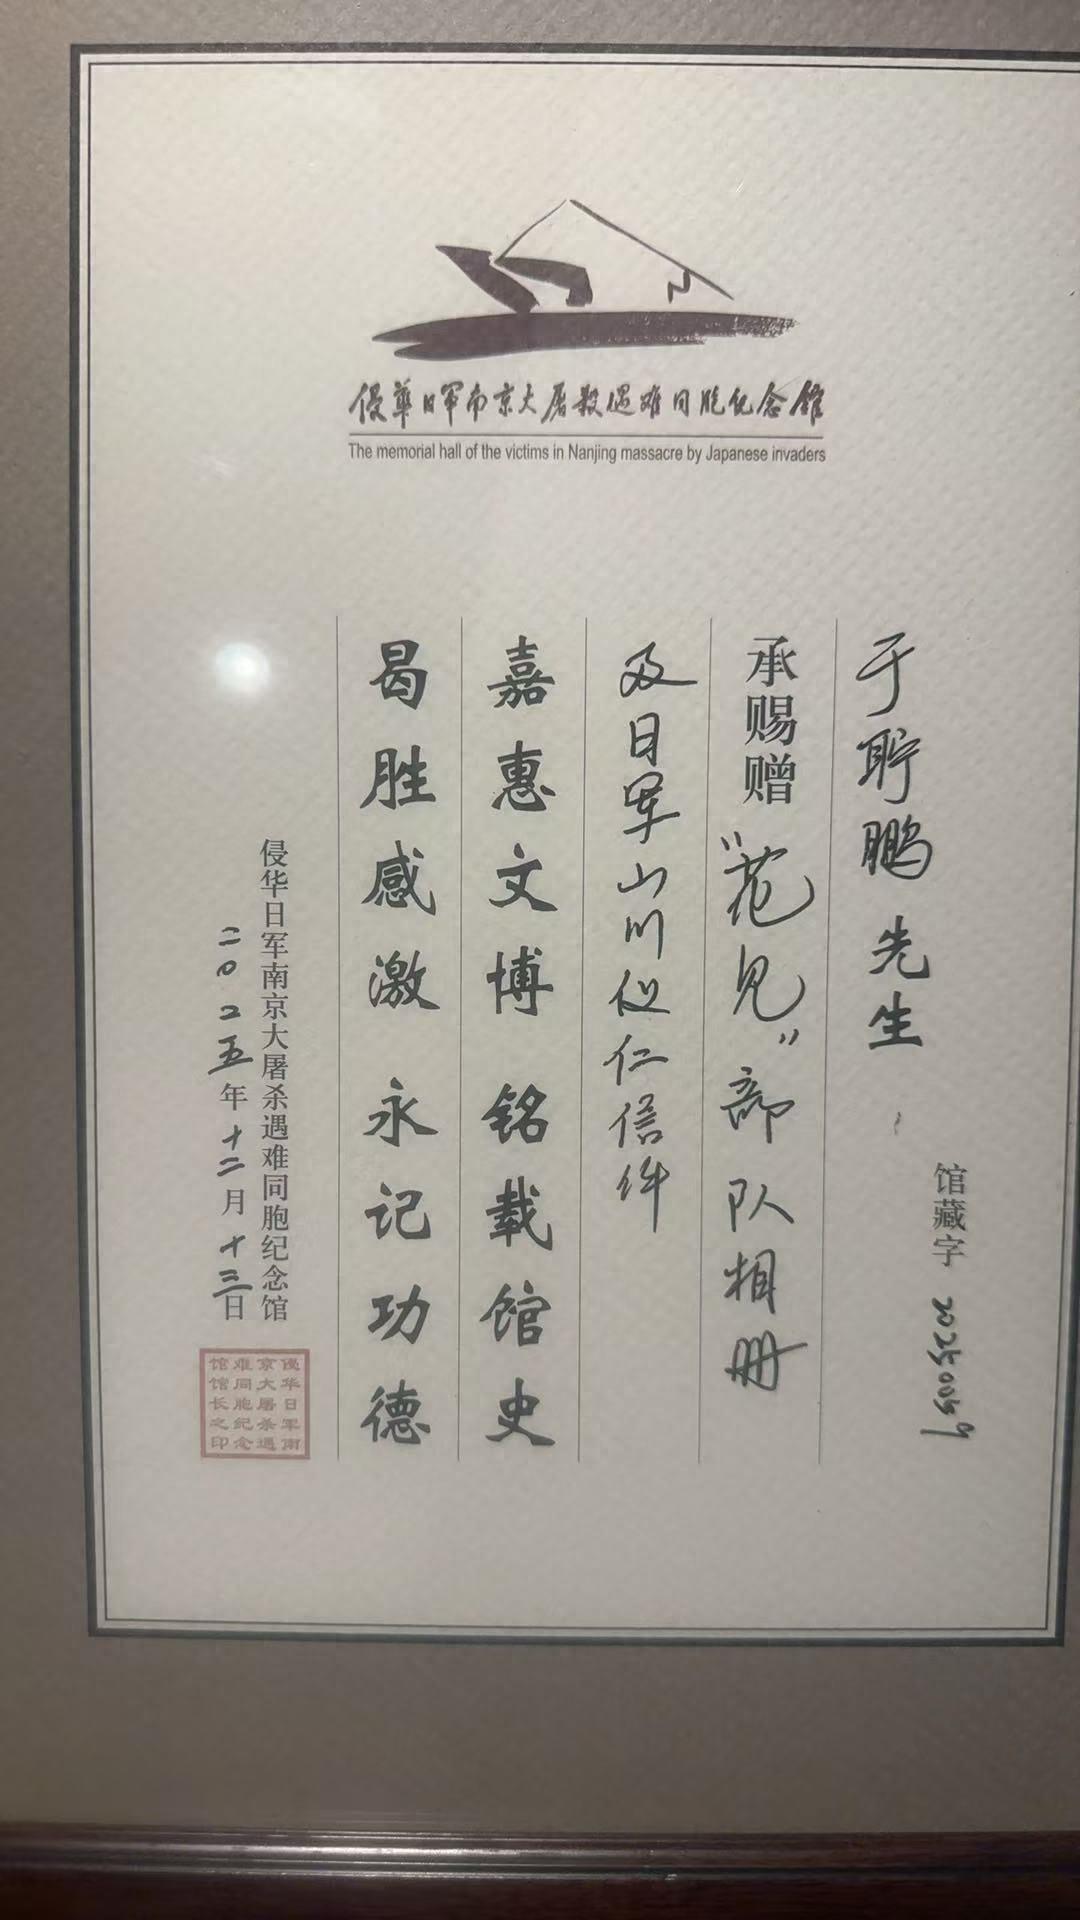 侵华日军南京大屠杀遇难同胞纪念馆
The memorial hall of the victims in Nanjing massacre by Japanese invaders
馆藏字 20250059
于聍鹏 先生
承赐赠“花见”部队相册
及日军山川仪仁信件
嘉惠文博 铭载馆史
曷胜感激 永记功德
侵华日军南京大屠杀遇难同胞纪念馆
二〇二五年十二月十三日
侵华日军南
京大屠杀遇
难同胞纪念
馆馆长之印